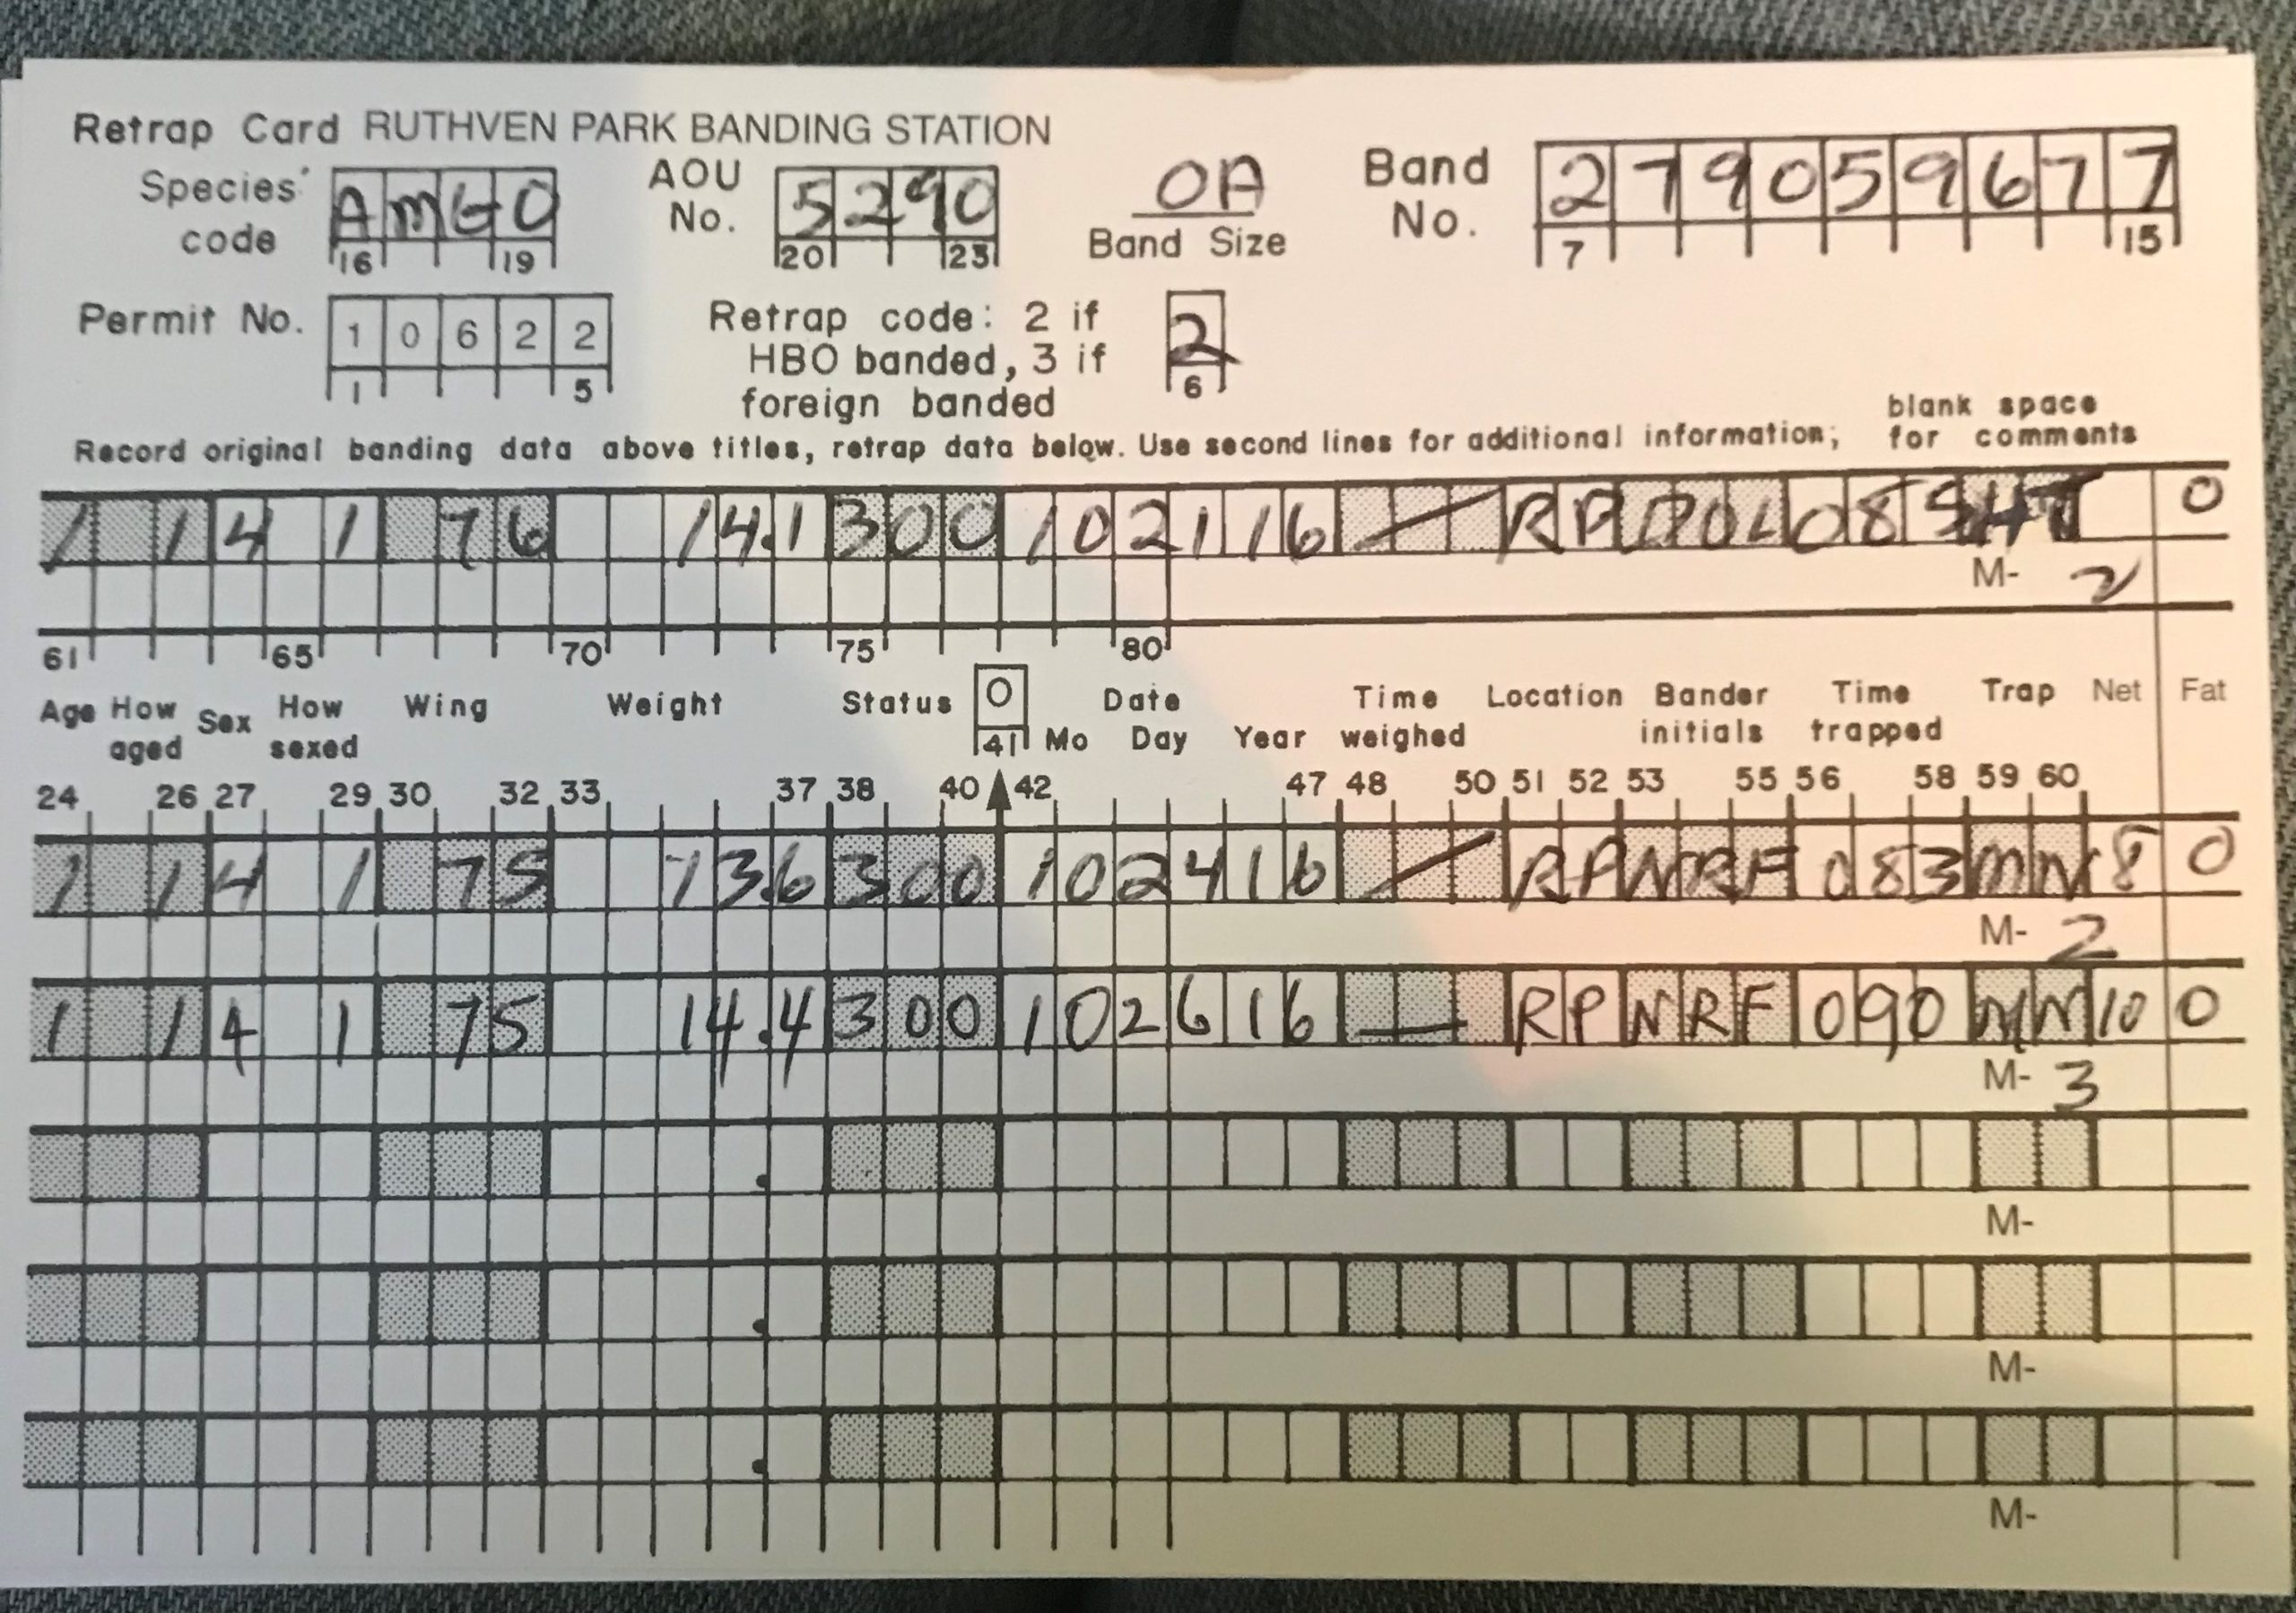 Retrap Card RUTHVEN PARK BANDING STATION
Species' code AMGO 16 19
AOU No. 5290 20 23
OA Band Size
Band No. 279059677 7 15
Permit No. 10622 1 5
Retrap code: 2 if HBO banded, 3 if foreign banded 2 6
blank space
Record original banding data above titles, retrap data below. Use second lines for additional information; for comments
1 1 4 1 76 14.1 300 10 21 16 — RP DOL 08 0
M- 2
61 65 70 75 80
Age How aged Sex How sexed Wing Weight Status 0 41 Mo Date Day Year Time weighed Location Bander initials Time trapped Trap Net Fat
24 26 27 29 30 32 33 37 38 40 42 47 48 50 51 52 53 55 56 58 59 60
1 1 4 1 75 13.6 300 10 24 16 — RP NRF 083 MN 8 0
M- 2
1 1 4 1 75 14.4 300 10 26 16 — RP NRF 090 MN 10 0
M- 3
M-
M-
M-